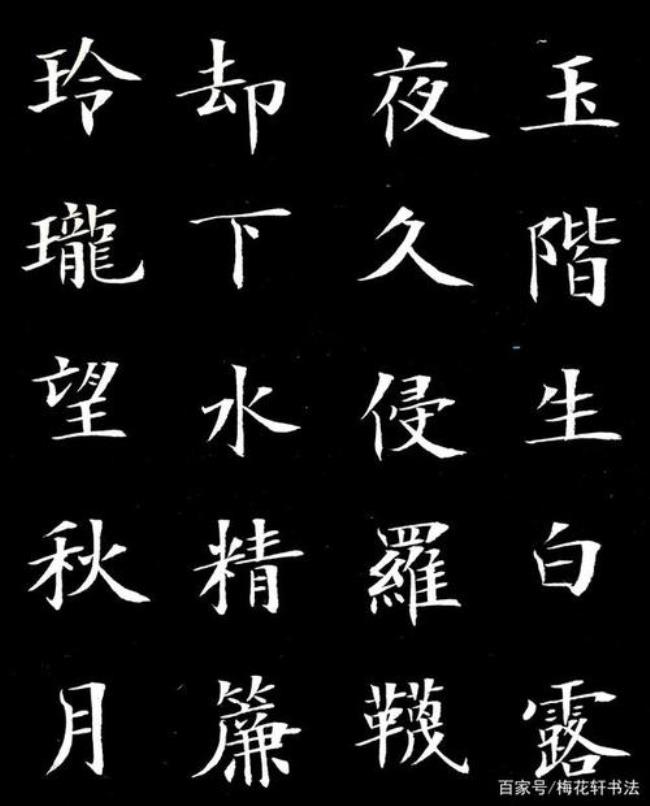 玉階生白露
夜久侵羅韈
却下水精簾
玲瓏望秋月
百家号/梅花轩书法